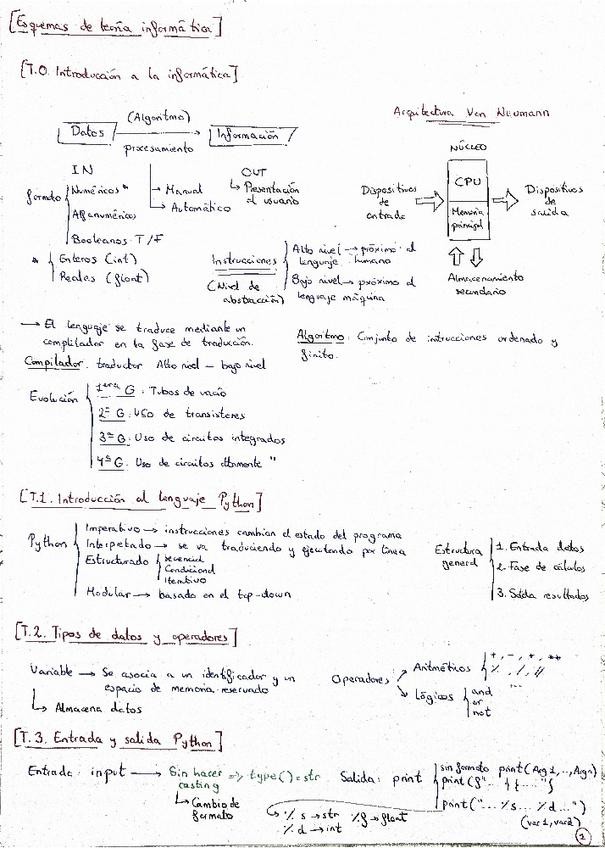 [Esquemas de teoría informática]
[T.0. Introducción a la informática]
Arquitectura Von Neumann
(Algoritmo)
Datos
Información
procesamiento
IN
formato
Numéricos *
Alfanuméricos
Booleanos T/F
* Enteros (int)
Reales (float)
Manual
Automático
OUT
Presentación
al usuario
Instrucciones
(Nivel de
abstracción)
Alto nivel → próximo al
lenguaje humano
Bajo nivel → próximo al
lenguaje máquina
NÚCLEO
CPU
Memoria
principal
Dispositivos
de
entrada
Dispositivos
de
salida
Almacenamiento
secundario
→ El lenguaje se traduce mediante un
complilador en la fase de traducción.
Compilador: traductor Alto nivel - bajo nivel
Algoritmo: Conjunto de intrucciones ordenado y
finito.
Evolución
1era G: Tubos de vacío
2ª G: Uso de transistores
3ª G: Uso de circuitos integrados
4ª G: Uso de circuitos altamente "
[T.1. Introducción al lenguaje Python]
Python
Imperativo → instrucciones cambian el estado del programa
Interpetado → se va traduciendo y ejecutando por línea
Estructurado
secuencial
Condicional
Iterativo
Modular → basado en el top-down
Estructura
general
1. Entrada datos
2. Fase de cálculos
3. Salida resultados
[T.2. Tipos de datos y operadores]
Variable → Se asocia a un identificador y un
espacio de memoria reservado
Almacena datos
Operadores
Aritméticos
+, -, *, **
%, /, //
...
Lógicos
and
or
not
[T.3. Entrada y salida Python]
Entrada: input → Sin hacer
casting
=> type() = str
Cambio de
formato
Salida: print
sin formato print(Arg1,..,Argn)
print(f"... { {...."})
print("... %s... %d...")
(var1,var2)
%s → str %f → float
%d → int
1